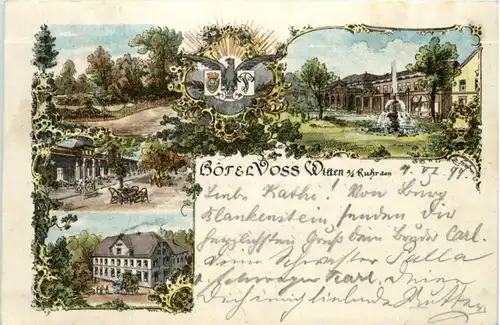 Hôtel Voss Witten a/ Ruhr den
4. VI. 97.
Liebe Kathe! Von Burg
Blankenstein senden die
herzlichsten Gruß Dein Bruder Carl.
deine Schwester Paula
Schwager Karl. Deine
Dich innig liebende Mutter